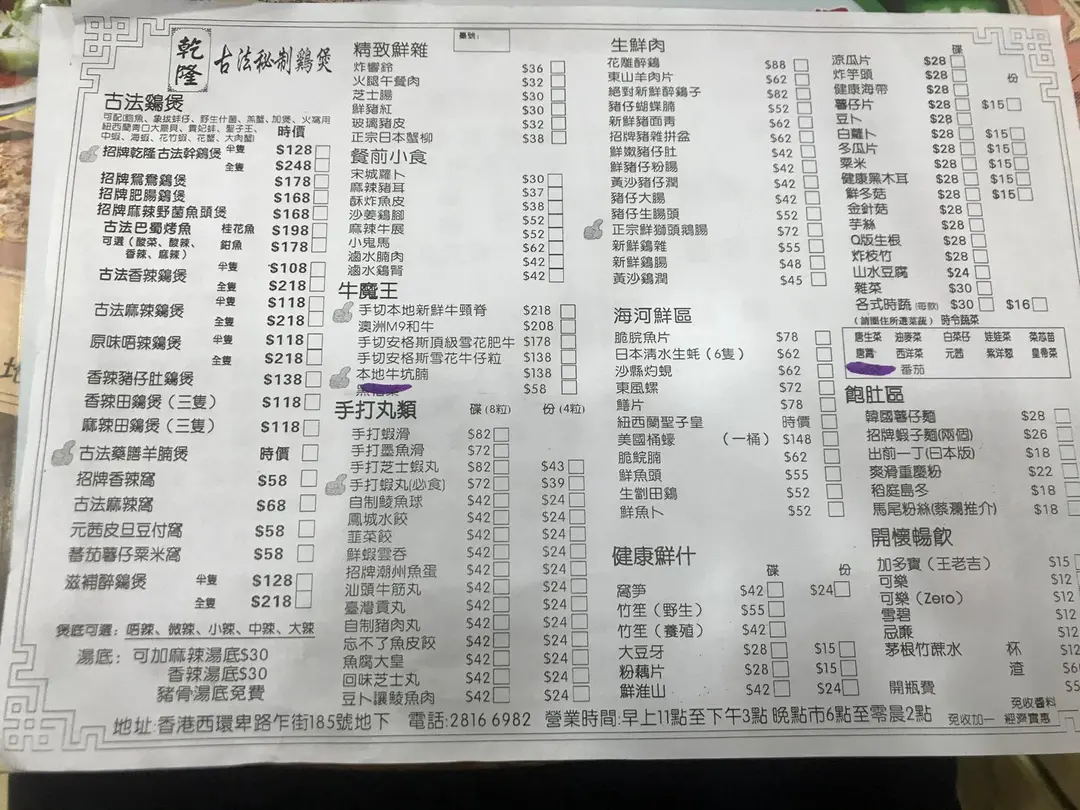 乾隆 古法秘制鷄煲
古法鷄煲
時價
招牌乾隆古法幹鷄煲 半隻 $128
全隻 $248
招牌鴛鴦鷄煲 $178
招牌肥腸鷄煲 $168
招牌麻辣野菌魚頭煲 $168
古法巴蜀烤魚 桂花魚 $198
可選(酸菜、酸辣、 鉗魚 $178
香辣、麻辣)
古法香辣鷄煲 半隻 $108
全隻 $218
古法麻辣鷄煲 半隻 $118
全隻 $218
原味唔辣鷄煲 半隻 $118
全隻 $218
香辣豬仔肚鷄煲 $138
香辣田鷄煲(三隻) $118
麻辣田鷄煲(三隻) $118
古法藥膳羊腩煲 時價
招牌香辣窩 $58
古法麻辣窩 $68
元茜皮旦豆付窩 $58
蕃茄薯仔粟米窩 $58
滋補醉鷄煲 半隻 $128
全隻 $218
煲底可選:唔辣、微辣、小辣、中辣、大辣
湯底:可加麻辣湯底$30
香辣湯底$30
豬骨湯底免費
臺號:
精致鮮雜
炸響鈴 $36
火腿午餐肉 $32
芝士腸 $30
鮮豬紅 $30
玻璃豬皮 $32
正宗日本蟹柳 $38
餐前小食
宋城蘿卜 $30
麻辣豬耳 $37
酥炸魚皮 $38
沙姜鷄腳 $52
麻辣牛展 $52
小鬼馬 $62
滷水腩肉 $42
滷水鷄腎 $42
牛魔王
手切本地新鮮牛頸脊 $218
澳洲M9和牛 $208
手切安格斯頂級雪花肥牛 $178
手切安格斯雪花牛仔粒 $138
本地牛坑腩 $138
$58
手打丸類 碟(8粒) 份(4粒)
手打蝦滑 $82
手打墨魚滑 $72
手打芝士蝦丸 $82 $43
手打蝦丸(必食) $72 $39
自制鯪魚球 $42 $24
鳳城水餃 $42 $24
韮菜餃 $42 $24
鮮蝦雲吞 $42 $24
招牌潮州魚蛋 $42 $24
汕頭牛筋丸 $42 $24
臺灣貢丸 $42 $24
自制豬肉丸 $42 $24
忘不了魚皮餃 $42 $24
魚腐大皇 $42 $24
回味芝士丸 $42 $24
豆卜讓鯪魚肉 $42 $24
生鮮肉
花雕醉鷄 $88
東山羊肉片 $62
絕對新鮮醉鷄子 $82
豬仔蝴蝶腩 $52
新鮮豬面青 $62
招牌豬雜拼盆 $62
鮮嫩豬仔肚 $42
鮮豬仔粉腸 $42
黃沙豬仔潤 $42
豬仔大腸 $42
豬仔生腸頭 $52
正宗鮮獅頭鵝腸 $72
新鮮鷄雜 $55
新鮮鷄腸 $48
黃沙鷄潤 $45
海河鮮區
脆脘魚片 $78
日本清水生蚝(6隻) $62
沙縣灼蜆 $62
東風螺 $72
鱔片 $78
紐西蘭聖子皇 時價
美國桶蠔 (一桶) $148
脆脘腩 $62
鮮魚頭 $55
生劏田鷄 $52
鮮魚卜 $52
健康鮮什 碟 份
窩筍 $42 $24
竹笙(野生) $55
竹笙(養殖) $42
大豆牙 $28 $15
粉藕片 $28 $15
鮮淮山 $42 $24
碟 份
涼瓜片 $28
炸芋頭 $28
健康海帶 $28
薯仔片 $28 $15
豆卜 $28
白蘿卜 $28 $15
冬瓜片 $28 $15
粟米 $28 $15
健康黑木耳 $28 $15
鮮冬菇 $28 $15
金針菇 $28
芋絲 $28
Q版生根 $28
炸枝竹 $28
山水豆腐 $24
雜菜 $30
各式時蔬(每款) $30 $16
(請圈住所選菜蔬) 時令蔬菜
唐生菜 油麥菜 白菜仔 娃娃菜 菜芯苗
唐蒿 西洋菜 元茜 紫洋蔥 皇帝菜
番茄
飽肚區
韓國薯仔麵 $28
招牌蝦子麵(兩個) $26
出前一丁(日本版) $18
爽滑重慶粉 $22
稻庭島冬 $18
馬尾粉絲(蔡瀾推介) $18
開懷暢飲
加多寶(王老吉) $15
可樂 $12
可樂(Zero) $12
雪碧 $12
忌廉 $12
茅根竹蔗水 杯 $12
渣
開瓶費
免收醬料
免收加一 經濟實惠
地址:香港西環卑路乍街185號地下 電話:2816 6982 營業時間:早上11點至下午3點 晚點市6點至零晨2點